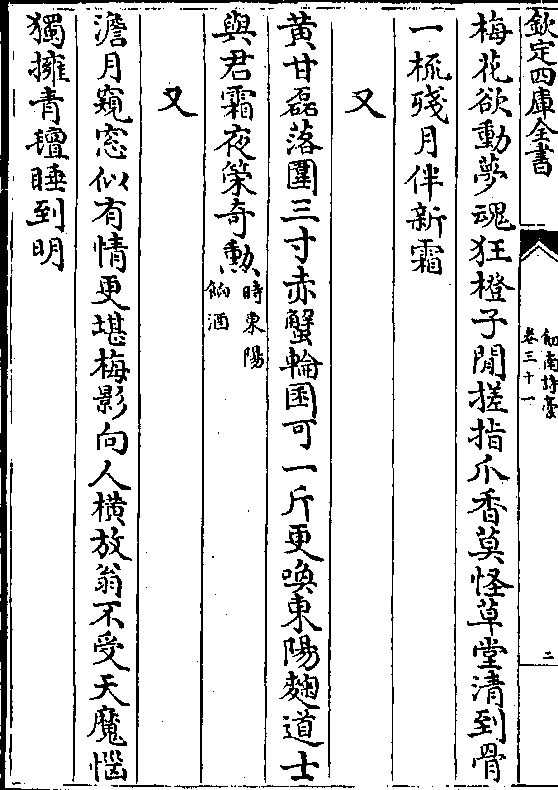 欽定四庫全書
劍南詩藁
卷三十一
二
梅花欲動夢魂狂橙子閒搓指爪香莫怪草堂清到骨
一梳殘月伴新霜
又
黄甘磊落圍三寸赤蟹輪囷可一斤更喚東陽麴道士
與君霜夜策奇勲時東陽
餉酒
又
澹月窺窓似有情更堪梅影向人橫放翁不受天魔惱
獨擁青氊睡到明